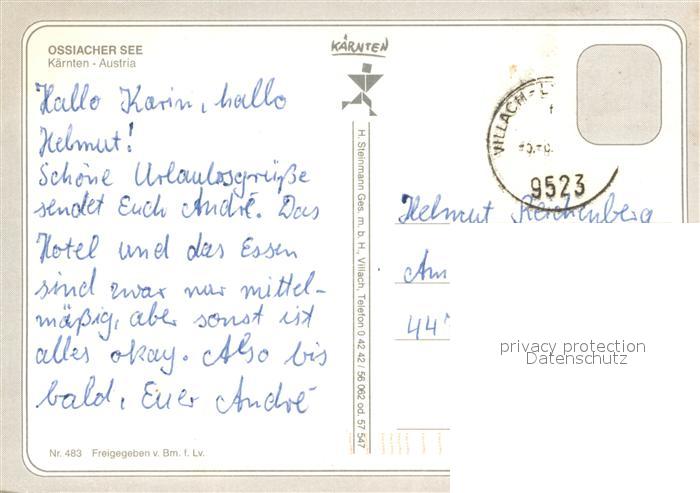 OSSIACHER SEE
Kärnten - Austria
Hallo Karin, hallo
Helmut!
Schöne Urlaubsgrüße
sendet Euch André. Das
Hotel und das Essen
sind zwar nur mittel-
mäßig, aber sonst ist
alles okay. Also bis
bald, Euer André
Nr. 483 Freigegeben v. Bm. f. Lv.
KÄRNTEN
H. Steinmann Ges. m. b. H., Villach, Telefon 0 42 42 / 56 062 od. 57 547
VILLACH-L
9523
Helmut Reichenberg
Am
44
privacy protection
Datenschutz